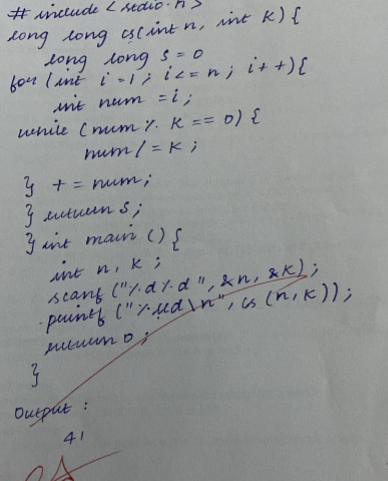 # include <stdio.h>
long long cs(int n, int k) {
long long s = 0
for (int i = 1; i <= n; i++) {
int num = i;
while (num % k == 0) {
num /= k;
} += num;
} return s;
} int main () {
int n, k;
scanf ("%d%d", &n, &k);
printf ("%lld\n", cs (n, k));
return 0;
}
Output :
41